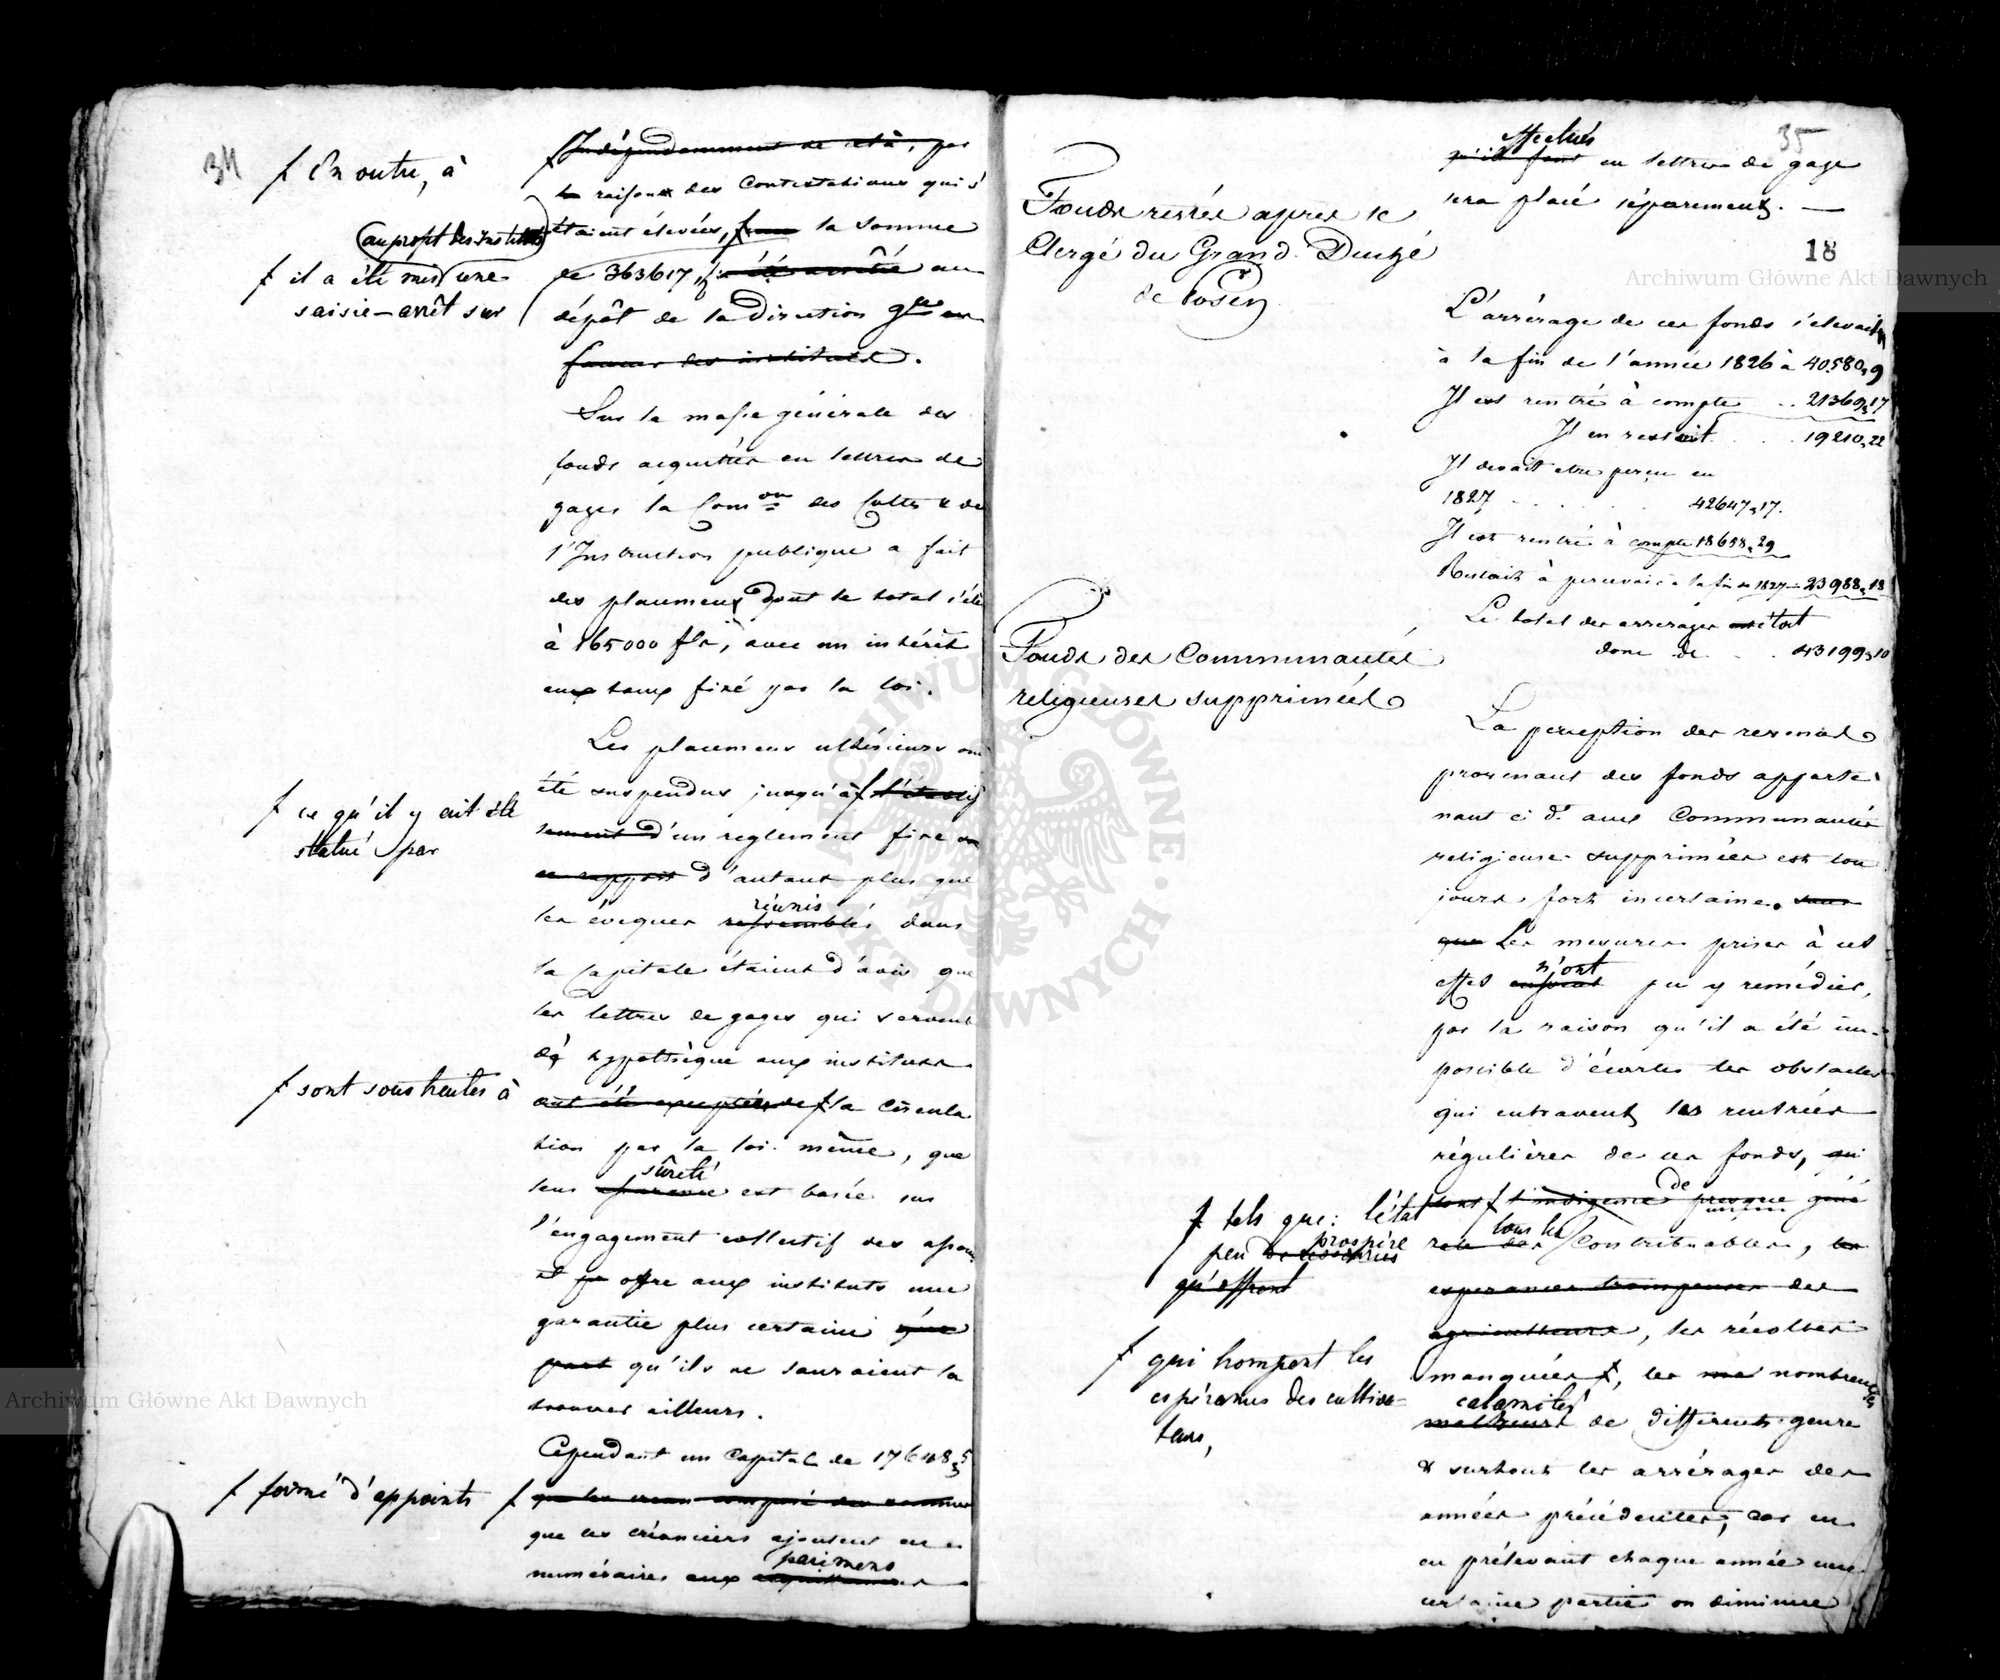 34
f En outre, à
f Indépendamment de celà, par
la raison des Contestations qui s'
étaient élevées, la somme
au profit des Instituts
f il a été mis une
saisie-arrêt sur
de 363617, f: a été arrêté au
dépôt de la Direction Gle en
faveur des instituts.
Sur la masse générale des
fonds acquittés en lettres de
gages la Comon des Cultes & de
l'Instruction publique a fait
des placemens dont le total s'élè
à 165000 fls, avec un intérêt
aux taux fixé par la loi.
Les placemens ultérieurs ont
été suspendus jusqu'à f l'établis
sement d'un reglement fixe
f ce qu'il y eut été
statué par
ce rapport d'autant plus que
réunis
les évêques rassemblés dans
la Capitale étaient d'avis que
les lettres de gages qui servent
d' hypothèque aux instituts
f sont soustraites à
ont été exceptées de f la circula
tion par la loi même, que
sûreté
leur est basée sur
l'engagement collectif des
et offre aux instituts une
garantie plus certaine que
part qu'ils ne sauraient la
trouver ailleurs.
Cependant un Capital de 17648,5
f formé d'appoints f
que les créanciers ajoutent en
paiemens
numéraires aux
35
effectués
qu'ils font en lettres de gage
sera placé séparement. —
Fonds restés après le
Clergé du Grand Duché
de Posen
18
L'arrérage de ces fonds s'elevait
à la fin de l'année 1826 à 40580,9
Il est rentré à compte . . 21369,17
Il en restait . . . 19210,22
Il devait etre perçu en
1827 . . . . . 42647,17.
Il est rentré à compte 18658,29
Restait à percevoir à la fin de 1827 — 23988,18
Le total des arrerages était
donc de . . 43199,10
Fonds des Communautés
religieuses supprimées
La perception des revenus
provenant des fonds apparte
nant ci dt aux Communautés
religieuses supprimées est tou
jours fort incertaine. sans
que Les mesures prises à cet
n'ont
effet pu y remédier,
par la raison qu'il a été im-
possible d'écarter les obstacles
qui entravent les rentrées
régulières de ces fonds, qui
f tels que: l'état
sont f l'indigence de presque géné
prospère
peu de ressources
tous les
rale des Contribuables, les
qu'offrent
esperances trompeuses des
agriculteurs, les récoltes
f qui trompent les
espérances des cultiva-
teurs,
manquées f, les nombreuses
calamités
malheurs de differents genre
& surtout les arrérages des
années précédentes, car en
en prélevant chaque année une
certaine partie on diminue
Archiwum Główne Akt Dawnych
Archiwum Główne Akt Dawnych
ARCHIWUM GŁÓWNE AKT DAWNYCH